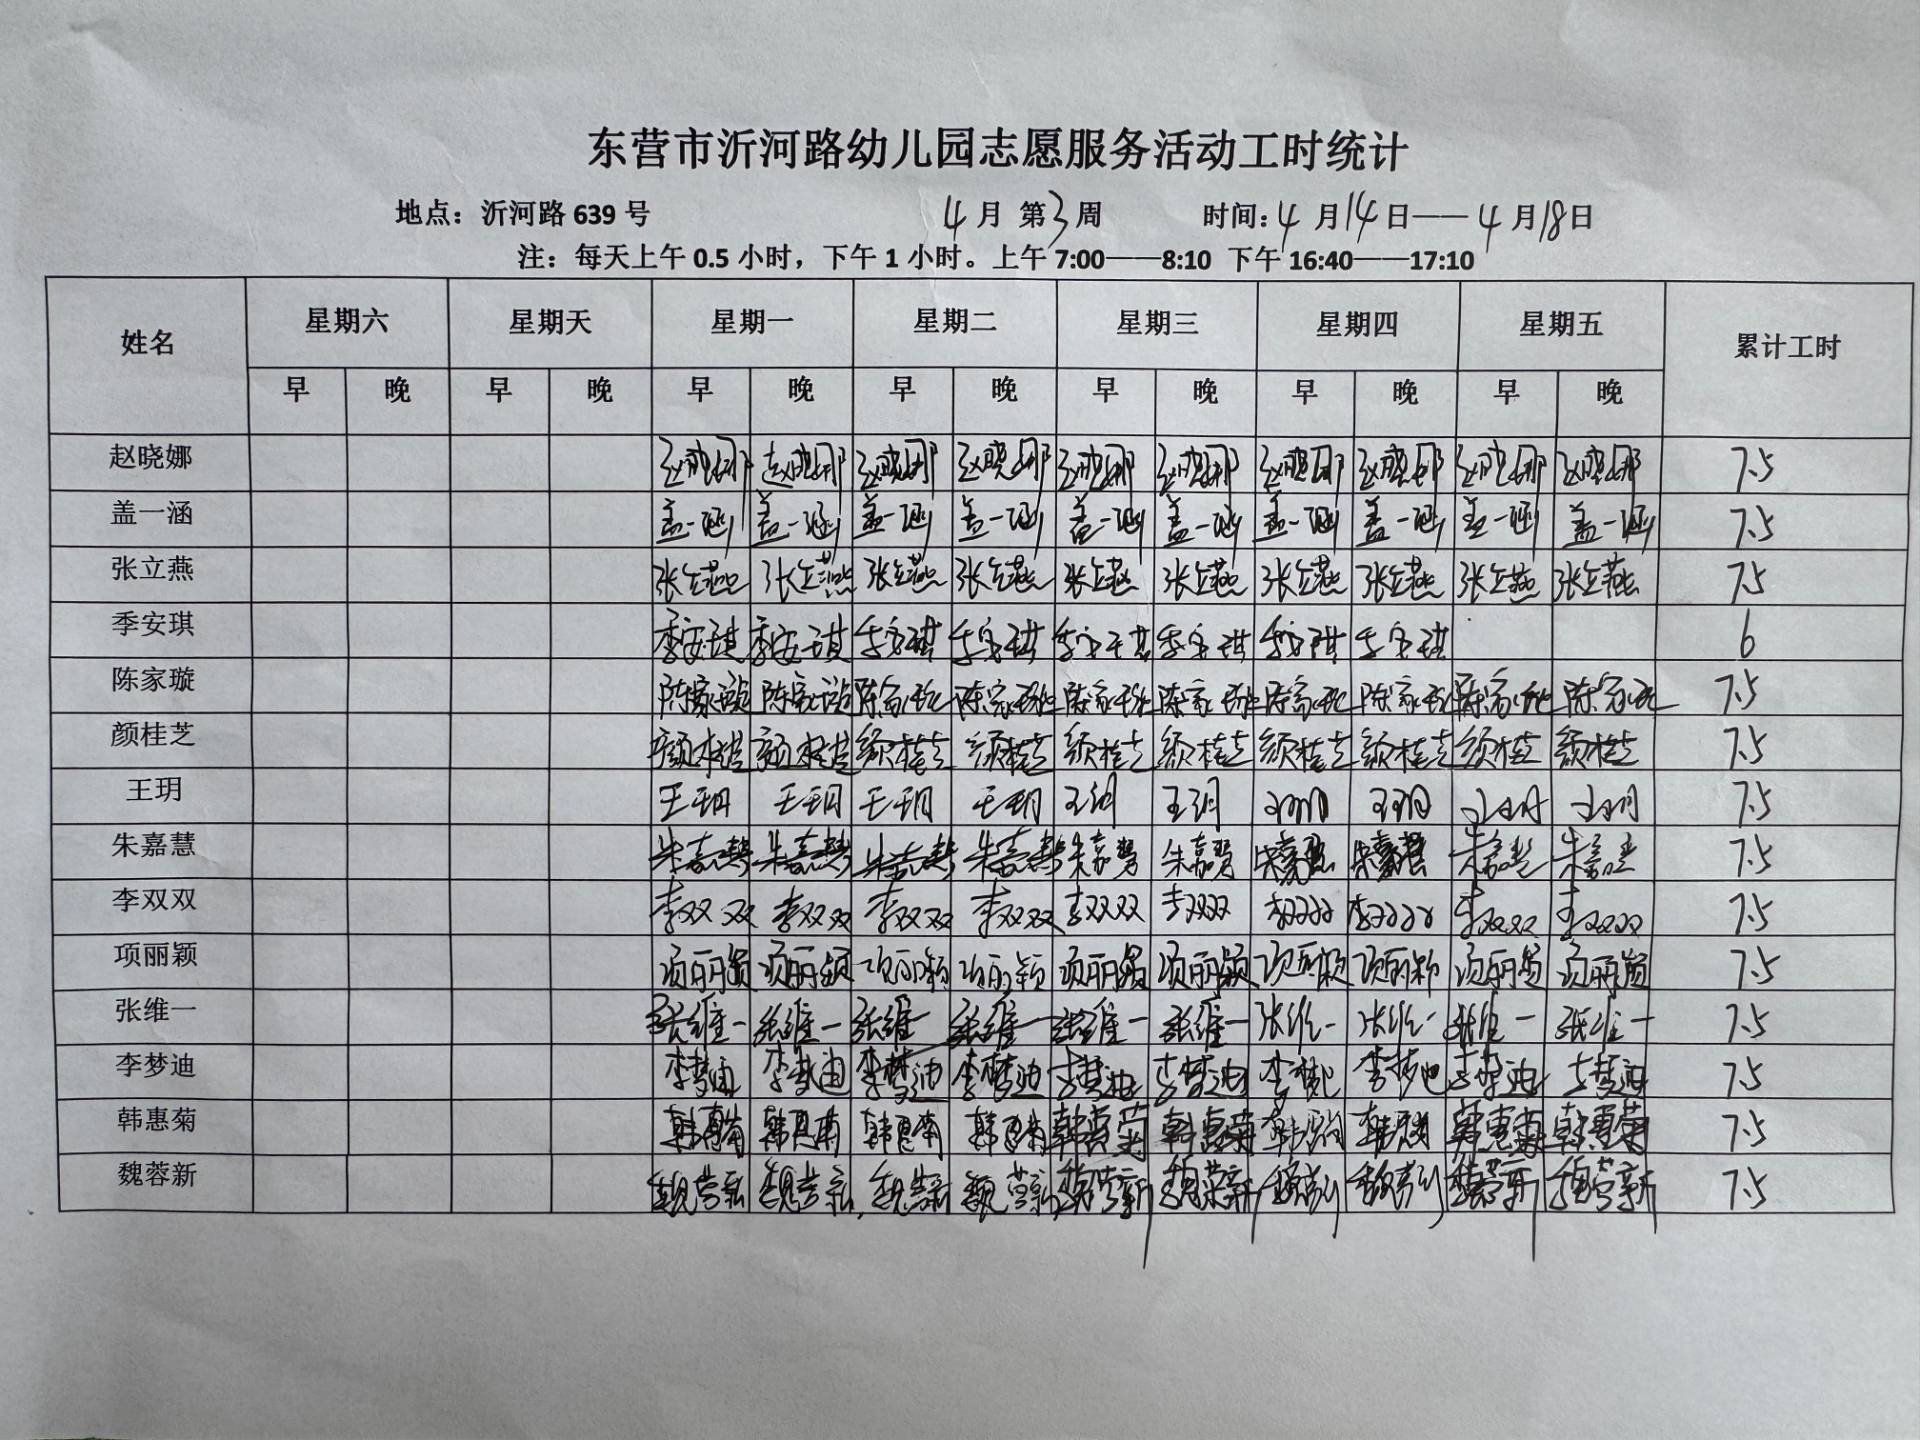 东营市沂河路幼儿园志愿服务活动工时统计
地点：沂河路 639 号 4 月 第 3 周 时间: 4 月 14 日—— 4 月 18 日
注：每天上午 0.5 小时，下午 1 小时。上午 7:00——8:10 下午 16:40——17:10
姓名 星期六 星期天 星期一 星期二 星期三 星期四 星期五 累计工时
早 晚 早 晚 早 晚 早 晚 早 晚 早 晚 早 晚
赵晓娜 赵晓娜 赵晓娜 赵晓娜 赵晓娜 赵晓娜 赵晓娜 赵晓娜 赵晓娜 赵晓娜 赵晓娜 7.5
盖一涵 盖一涵 盖一涵 盖一涵 盖一涵 盖一涵 盖一涵 盖一涵 盖一涵 盖一涵 盖一涵 7.5
张立燕 张立燕 张立燕 张立燕 张立燕 张立燕 张立燕 张立燕 张立燕 张立燕 张立燕 7.5
季安琪 季安琪 季安琪 季安琪 季安琪 季安琪 季安琪 季安琪 季安琪 6
陈家璇 陈家璇 陈家璇 陈家璇 陈家璇 陈家璇 陈家璇 陈家璇 陈家璇 陈家璇 陈家璇 7.5
颜桂芝 颜桂芝 颜桂芝 颜桂芝 颜桂芝 颜桂芝 颜桂芝 颜桂芝 颜桂芝 颜桂芝 颜桂芝 7.5
王玥 王玥 王玥 王玥 王玥 王玥 王玥 王玥 王玥 王玥 王玥 7.5
朱嘉慧 朱嘉慧 朱嘉慧 朱嘉慧 朱嘉慧 朱嘉慧 朱嘉慧 朱嘉慧 朱嘉慧 朱嘉慧 朱嘉慧 7.5
李双双 李双双 李双双 李双双 李双双 李双双 李双双 李双双 李双双 李双双 李双双 7.5
项丽颖 项丽颖 项丽颖 项丽颖 项丽颖 项丽颖 项丽颖 项丽颖 项丽颖 项丽颖 项丽颖 7.5
张维一 张维一 张维一 张维一 张维一 张维一 张维一 张维一 张维一 张维一 张维一 7.5
李梦迪 李梦迪 李梦迪 李梦迪 李梦迪 李梦迪 李梦迪 李梦迪 李梦迪 李梦迪 李梦迪 7.5
韩惠菊 韩惠菊 韩惠菊 韩惠菊 韩惠菊 韩惠菊 韩惠菊 韩惠菊 韩惠菊 韩惠菊 韩惠菊 7.5
魏蓉新 魏蓉新 魏蓉新 魏蓉新 魏蓉新 魏蓉新 魏蓉新 魏蓉新 魏蓉新 魏蓉新 魏蓉新 7.5